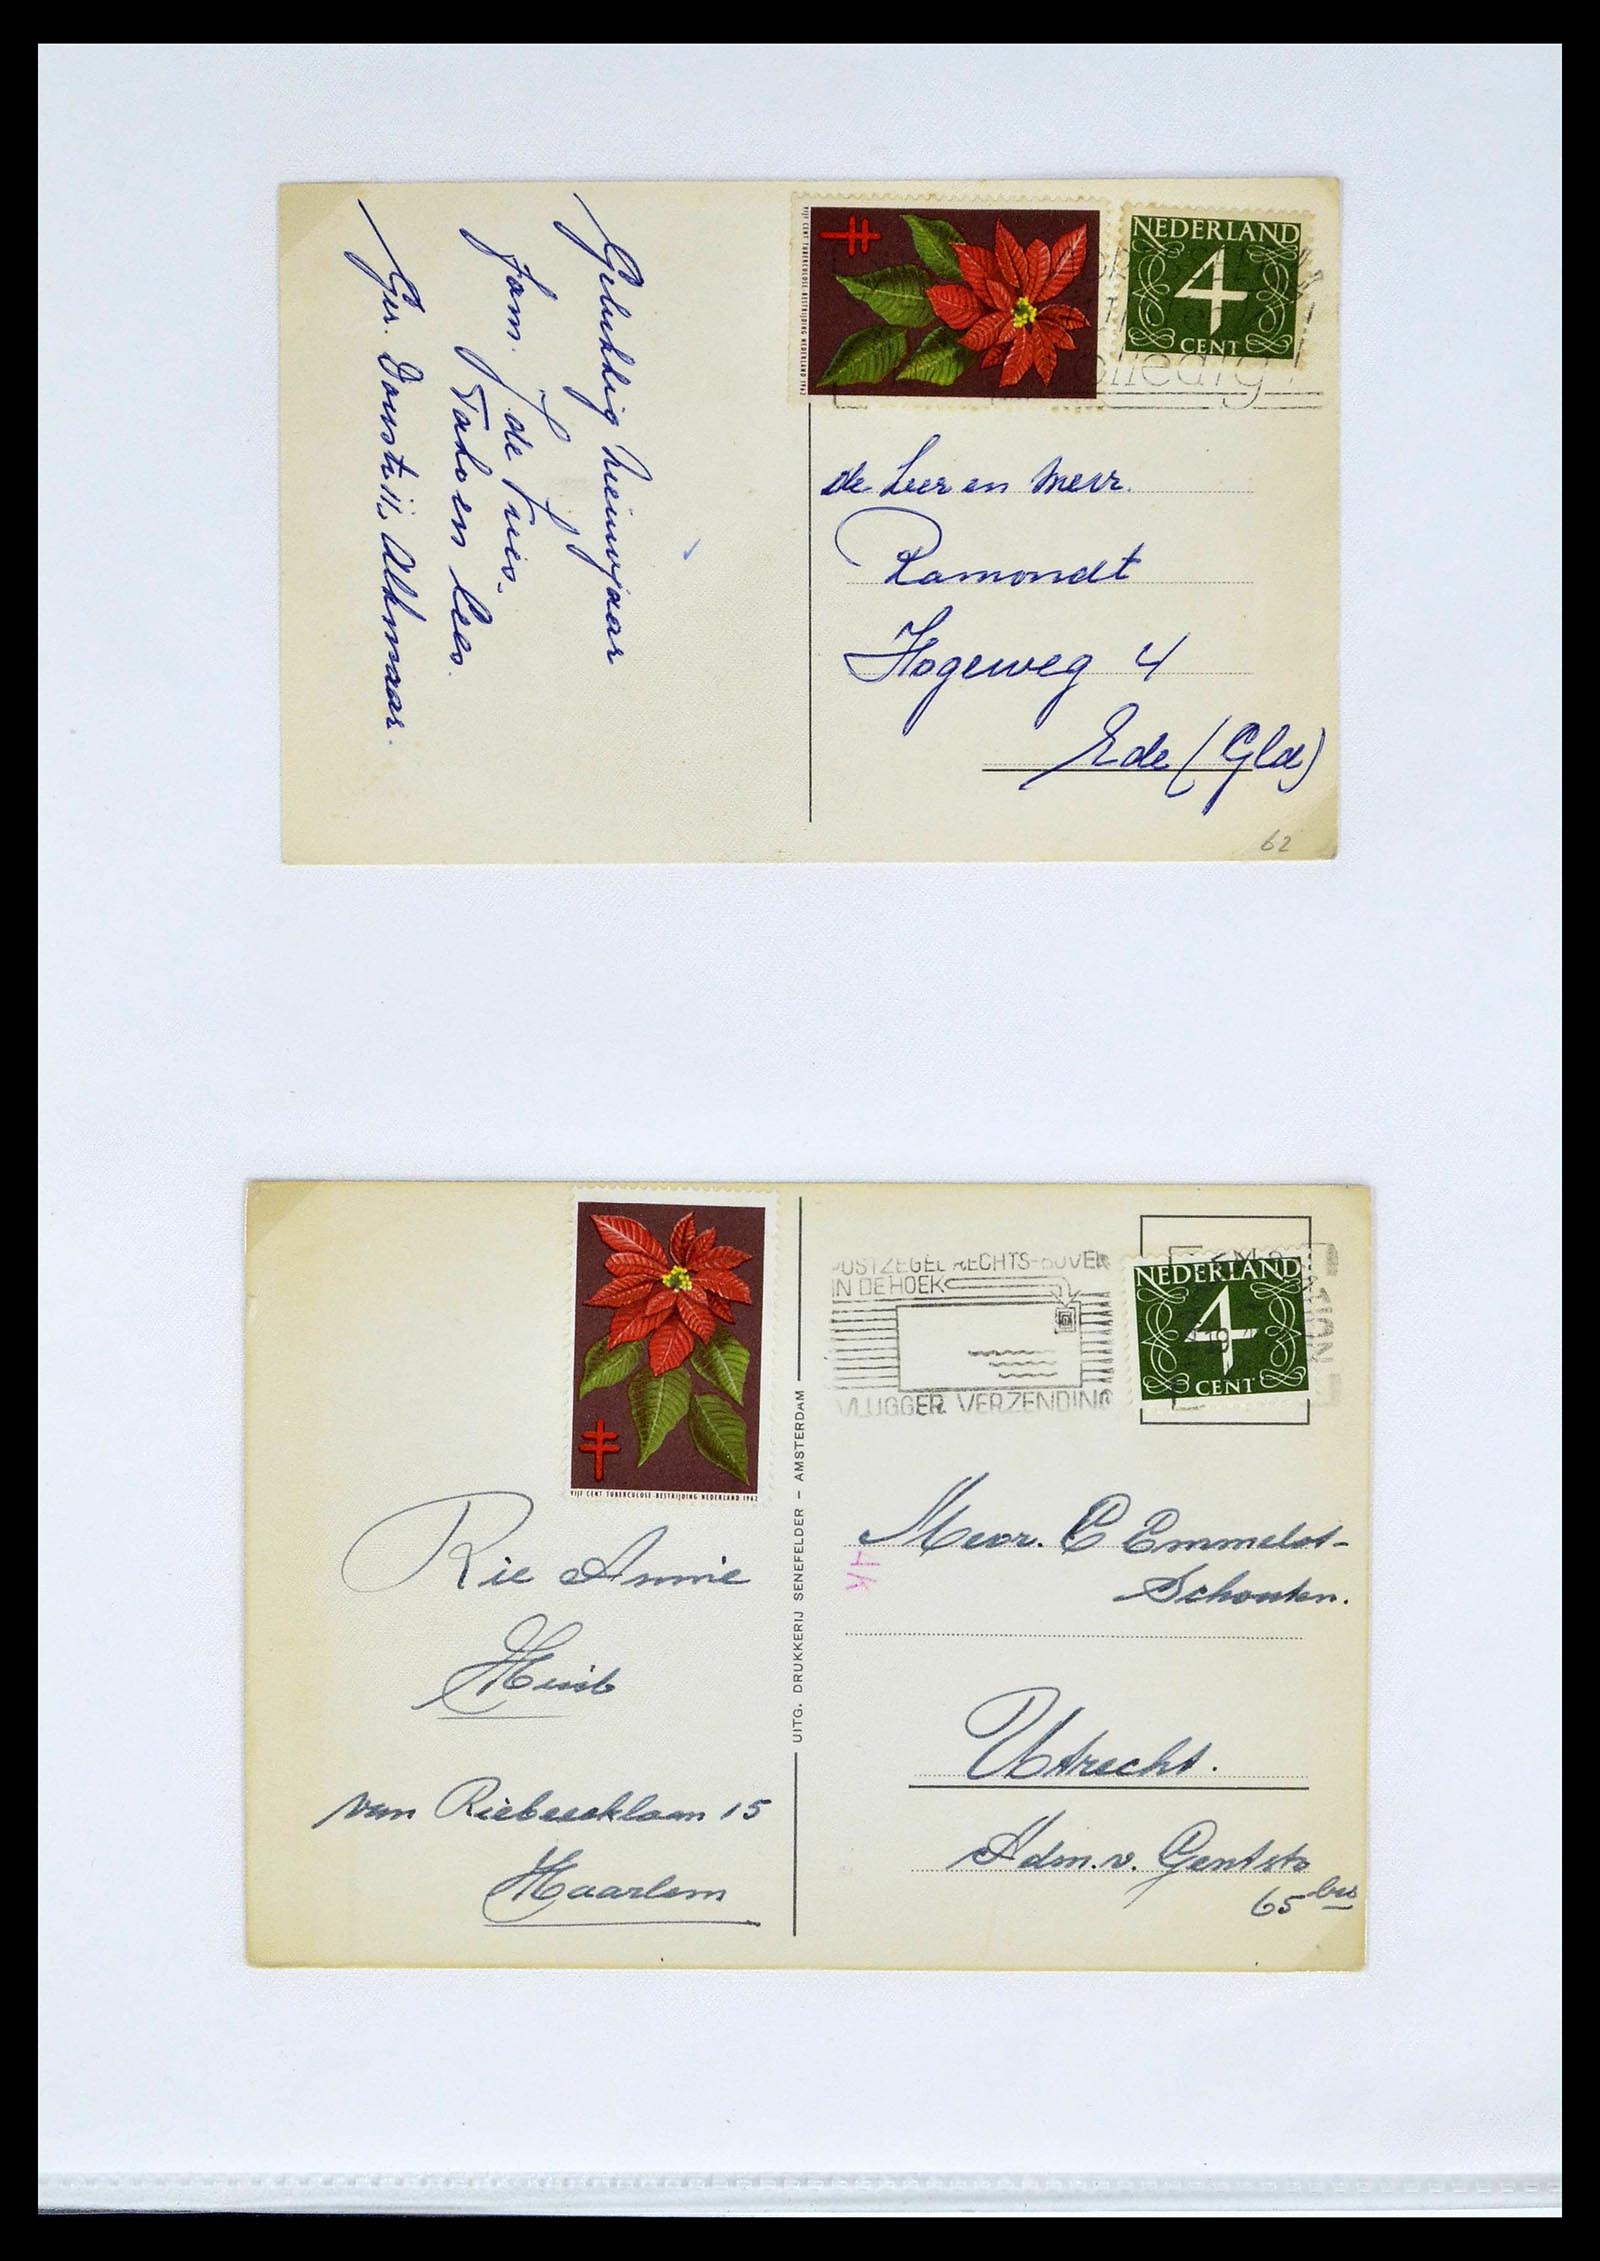 VIJF CENT TUBERCULOSE-BESTRIJDING NEDERLAND 1962
NEDERLAND
4
CENT
Gelukkig nieuwjaar
fam. J. de Vries.
en Cees.
Ger. Doustr. 11, Alkmaar.
de Heer en Mevr.
Ramondt
Hogeweg 4
Ede (Gld)
62
POSTZEGEL RECHTS-BOVEN
IN DE HOEK
VLUGGER VERZENDING
NEDERLAND
4
CENT
VIJF CENT TUBERCULOSE-BESTRIJDING NEDERLAND 1962
UITG. DRUKKERIJ SENEFELDER - AMSTERDAM
Rie Annie
Huib
van Riebeecklaan 15
Haarlem
Mevr. C Emmelot-
Schouten.
Utrecht.
Adm. v. Gentstr
65 bis